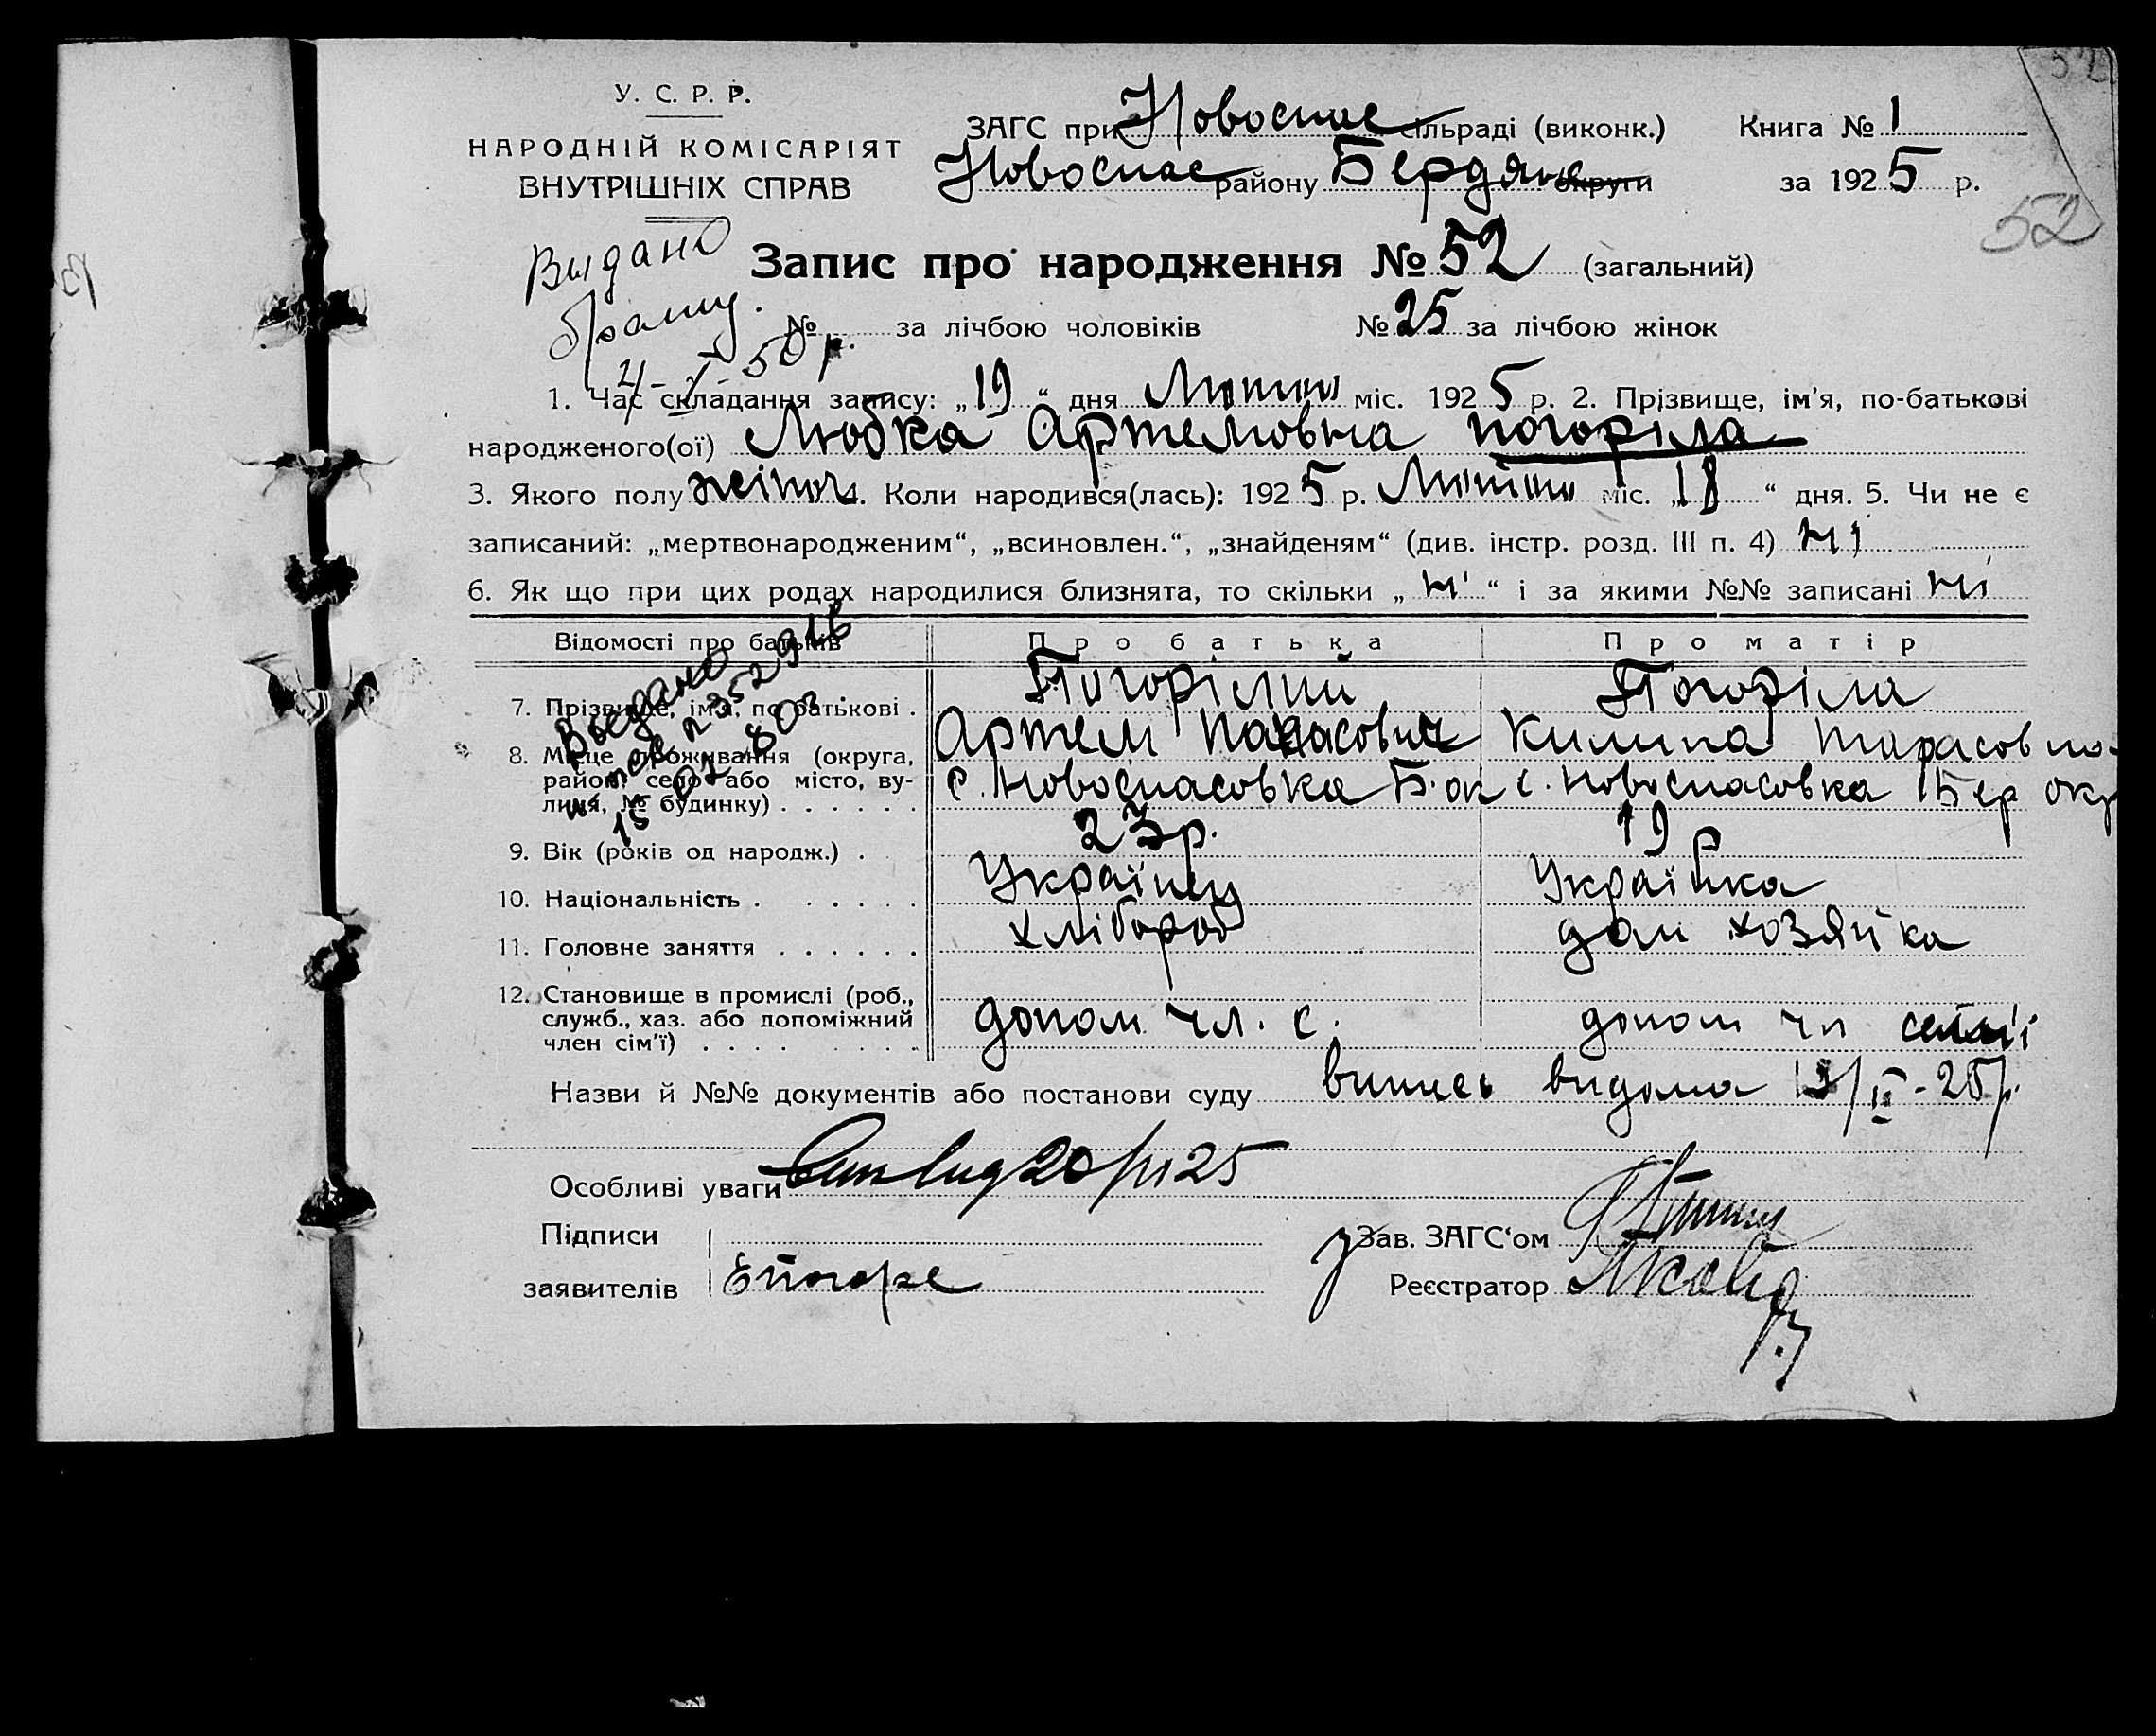 52
У. С. Р. Р.
НАРОДНІЙ КОМІСАРІЯТ
ВНУТРІШНІХ СПРАВ
ЗАГС при Новоспас сільраді (виконк.) Книга № 1
Новоспас району Бердянс округи за 1925 р.
52
Выдано
Запис про народження № 52 (загальний)
№ за лічбою чоловіків № 25 за лічбою жінок
50 р.
1. Час складання запису: „19“ дня Лютого міс. 1925 р. 2. Прізвище, ім’я, по-батькові
народженого(ої) Любка Артемовна Погоріла
3. Якого полу жіноч 4. Коли народився(лась): 1925 р. Лютого міс. „18“ дня. 5. Чи не є
записаний: „мертвонародженим“, „всиновлен.“, „знайденям“ (див. інстр. розд. III п. 4) ні
6. Як що при цих родах народилися близнята, то скільки „ні“ і за якими №№ записані ні
Відомості про батьків Про батька Про матір
7. Прізвище, ім’я, по батькові . Погорілий Погоріла
Артем Килина Тарасовна
8. Місце проживання (округа, район, село або місто, вулиця, № будинку) . . . . . . с. Новоспасовка Б. ок с. Новоспасовка Бер окр
9. Вік (років од народж.) . 23 р. 19 р
10. Національність . . . . . . Українец Українка
11. Головне заняття . . . . . . хлібороб дом хозяйка
12. Становище в промислі (роб., служб., хаз. або допоміжний член сім’ї) . . . . допом чл. с. допом чл семьі
Выдано
80 г.
Назви й №№ документів або постанови суду випись видана /II-25 р.
Особливі уваги 20/III 25
Підписи
заявителів
Зав. ЗАГС‘ом
Реєстратор